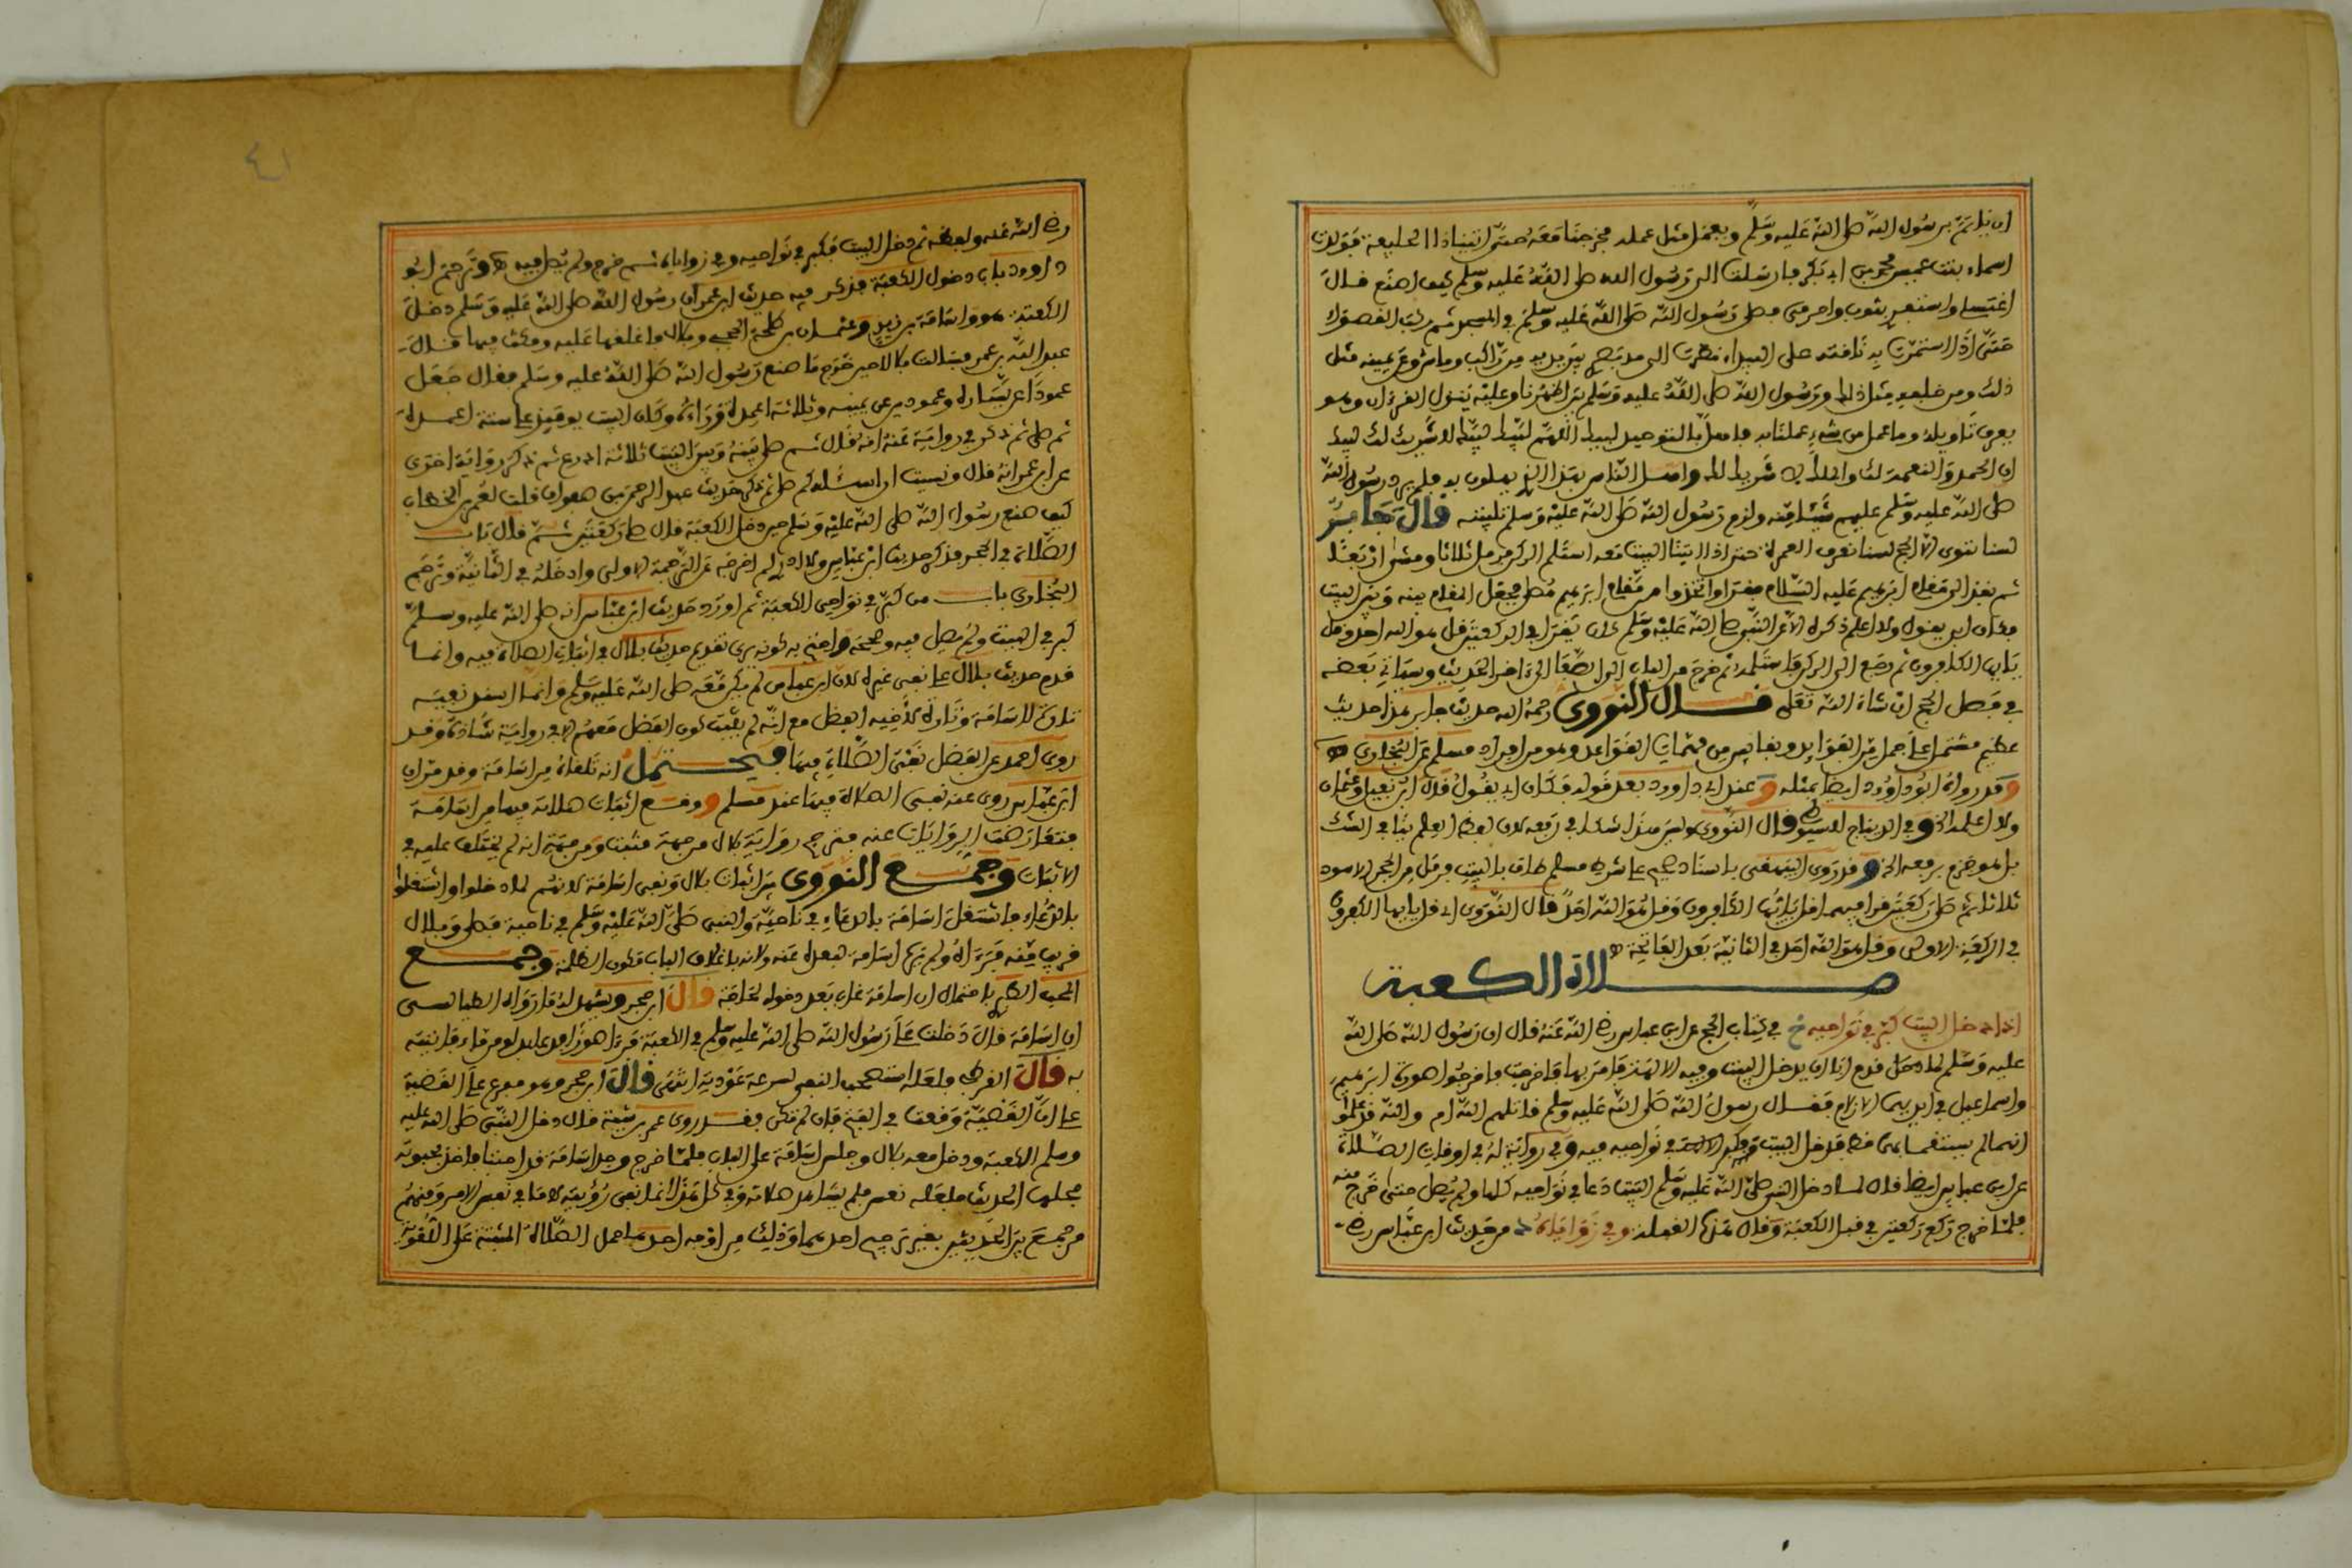 ان ياتم برسول الله صلى الله عليه وسلم ويعمل مثل عمله فخرجنا معه حتى اتينا ذا الحليفة فولدت
اسماء بنت عميس محمد بن ابي بكر فارسلت الى رسول الله صلى الله عليه وسلم كيف اصنع قال
اغتسلي واستثفري بثوب واحرمي فصلى رسول الله صلى الله عليه وسلم في المسجد ثم ركب القصواء
حتى اذا استوت به ناقته على البيداء نظرت الى مد بصري بين يديه من راكب وماش وعن يمينه مثل
ذلك ومن خلفه مثل ذلك ورسول الله صلى الله عليه وسلم بين اظهرنا وعليه ينزل القرءان وهو
يعرف تاويله وما عمل من شيء عملنا به فاهل بالتوحيد لبيك اللهم لبيك لبيك لا شريك لك لبيك
ان الحمد والنعمة لك والملك لا شريك لك واهل الناس بهذا الذي يهلون به فلم يرد رسول الله
صلى الله عليه وسلم عليهم شيئا منه ولزم رسول الله صلى الله عليه وسلم تلبيته قال جابر
لسنا ننوي الا الحج لسنا نعرف العمرة حتى اذا اتينا البيت معه استلم الركن فرمل ثلاثا ومشى اربعا
ثم نفذ الى مقام ابرهيم عليه السلام فقرا واتخذوا من مقام ابرهيم مصلى فجعل المقام بينه وبين البيت
فكان ابي يقول ولا اعلم ذكره الا عن النبي صلى الله عليه وسلم كان يقرا في الركعتين قل هو الله احد وقل
يايها الكافرون ثم رجع الى الركن فاستلمه ثم خرج من الباب الى الصفا الى ءاخر الحديث وسياتي بعضه
في فصل الحج ان شاء الله تعلى قال النووي رحمه الله حديث جابر هذا حديث
عظيم مشتمل على جمل من الفوايد ونفايس من مهمات القواعد وهو من افراد مسلم عن البخاري
وقد رواه ابو داوود ايضا بمثله وعند ابي داوود بعد قوله فكان ابي يقول قال ابن نفيل وعثمان
ولا اعلمه الخ وفي الديباج للسيوطي قال النووي وليس هذا شكا في رفعه لان لفظ العلم ينافي الشك
بل هو جزم برفعه الخ وقد روى البيهقي باسناد صحيح على شرط مسلم طاف بالبيت فرمل من الحجر الاسود
ثلاثا ثم صلى ركعتين قرا فيهما قل يايها الكافرون وقل هو الله احد قال النووي اي قل يايها الكفرون
في الركعة الاولى وقل هو الله احد في الثانية بعد الفاتحة
صلاة الكعبة
اذا دخل البيت كبر في نواحيه خ في كتاب الحج عن ابن عباس رضي الله عنه قال ان رسول الله صلى الله
عليه وسلم لما دخل قدم ابى ان يدخل البيت وفيه الالهة فامر بها فاخرجت فاخرجوا صورة ابرهيم
واسماعيل في ايديهما الازلام فقال رسول الله صلى الله عليه وسلم قاتلهم الله ام والله قد علموا
انهما لم يستقسما بها قط فدخل البيت فكبر في نواحيه فيه وفي رواية له في اوقات الصلاة
عن ابن عباس ايضا قال لما دخل النبي صلى الله عليه وسلم البيت دعا في نواحيه كلها ولم يصل حتى خرج منه
فلما خرج ركع ركعتين في قبل الكعبة وقال هذه القبلة وفي زواياه من حديث ابن عباس رضي
رضي الله عنه ولفظه ثم دخل البيت فكبر في نواحيه وفي زواياه ثم خرج ولم يصل فيه وترجم ابو
داوود باب دخول الكعبة فذكر فيه حديث ابن عمر ان رسول الله صلى الله عليه وسلم دخل
الكعبة هو واسامة بن زيد وعثمان بن طلحة الحجبي وبلال فاغلقها عليه ومكث فيها قال
عبد الله بن عمر فسالت بلالا حين خرج ما صنع رسول الله صلى الله عليه وسلم فقال جعل
عمودا عن يساره وعمودين عن يمينه وثلاثة اعمدة وراءه وكان البيت يومئذ على ستة اعمدة
ثم صلى ثم ذكر في رواية عنه انه قال ثم صلى بينه وبين البيت ثلاثة اذرع ثم ذكر رواية اخرى
عن ابن عمر انه قال ونسيت ان اسئله كم صلى ثم ذكر حديث عبد الرحمن بن صفوان قلت لعمر بن الخطاب
كيف صنع رسول الله صلى الله عليه وسلم حين دخل الكعبة قال صلى ركعتين ثم قال باب
الصلاة في الحجر فذكر حديث ابن عباس
البخاري باب من كبر في نواحي الكعبة ثم اورد حديث ابن عباس انه صلى الله عليه وسلم
كبر في البيت ولم يصل فيه وصححه واحتج به كونه يرى تقديم حديث بلال في اثبات الصلاة فيه وانما
قدم حديث بلال على نفي غيره لان ابن عباس لم يكن معه صلى الله عليه وسلم وانما اسند نفيه
تارة لاسامة وتارة لاخيه الفضل مع انه لم يثبت كون الفضل معهم الا في رواية شاذة وقد
روى احمد عن الفضل نفي الصلاة فيها فيحتمل انه تلقاه من اسامة وقد مر ان
ابن عباس روى عنه نفي الصلاة فيها عند مسلم ووقع اثبات صلاته فيها من اسامة
فتعارضت الروايات عنه فترجح رواية بلال من جهة مثبت ومن جهة انه لم يختلف عليه في
الاثبات وجمع النووي بين اثبات بلال ونفي اسامة لانهم لما دخلوا واشتغلوا
بالدعاء فاشتغل اسامة بالدعاء في ناحية والنبي صلى الله عليه وسلم في ناحية فصلى وبلال
قريب منه فرءاه ولم يره اسامة لبعده عنه ولانه باغلاق الباب تكون الظلمة وجمع
المحب الطبري باحتمال ان اسامة غاب بعد دخوله لحاجة قال ابن حجر ويشهد له ما رواه الطيالسي
ان اسامة قال دخلت على رسول الله صلى الله عليه وسلم في الكعبة فرءا صورا فدعا بدلو من ماء فاتيته
به قال القرطبي ولعله استصحب النفي لسرعة عودته انتهى قال ابن حجر وهو مفرع على القضية
على ان القضية وقعت في الفتح فان لم تكن فقد روى عمر بن شبة قال دخل النبي صلى الله عليه
وسلم الكعبة ودخل معه بلال وجلس اسامة على الباب فلما خرج وجد اسامة قد احتبى فاخذ بحبوته
فحلها الحديث فلعله نعس فلم يشاهد صلاته وفي كل هذا انما نفى رؤيته لا ما في نفس الامر ومنهم
من جمع بين الحديثين بغير ترجيح احدهما وذلك من اوجه احدها حمل الصلاة المثبتة على اللغوية